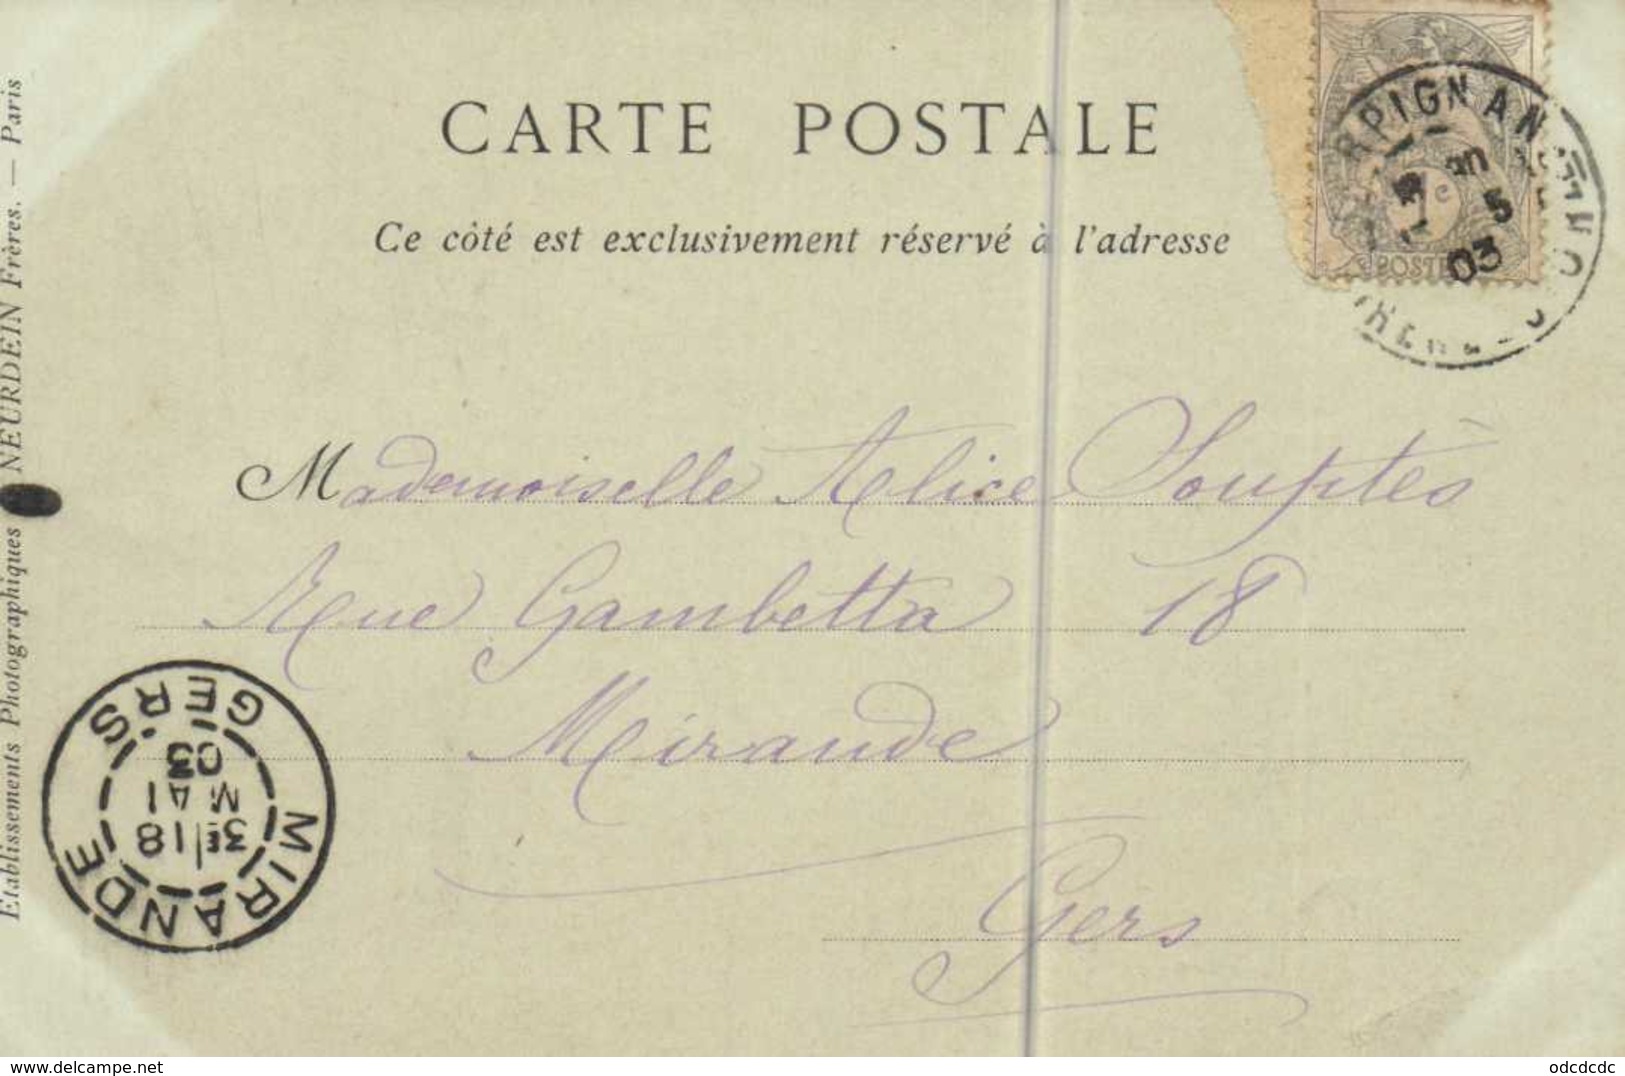 CARTE POSTALE
Ce côté est exclusivement réservé à l'adresse
Mademoiselle Alice Souptès
Rue Gambetta 18
Mirande
Gers
Etablissements Photographiques NEURDEIN Frères. — Paris
RPIGNAN
5
03
POSTE
MIRANDE
3E 18
MAI
03
GERS
www.delcampe.net
odcdcdc